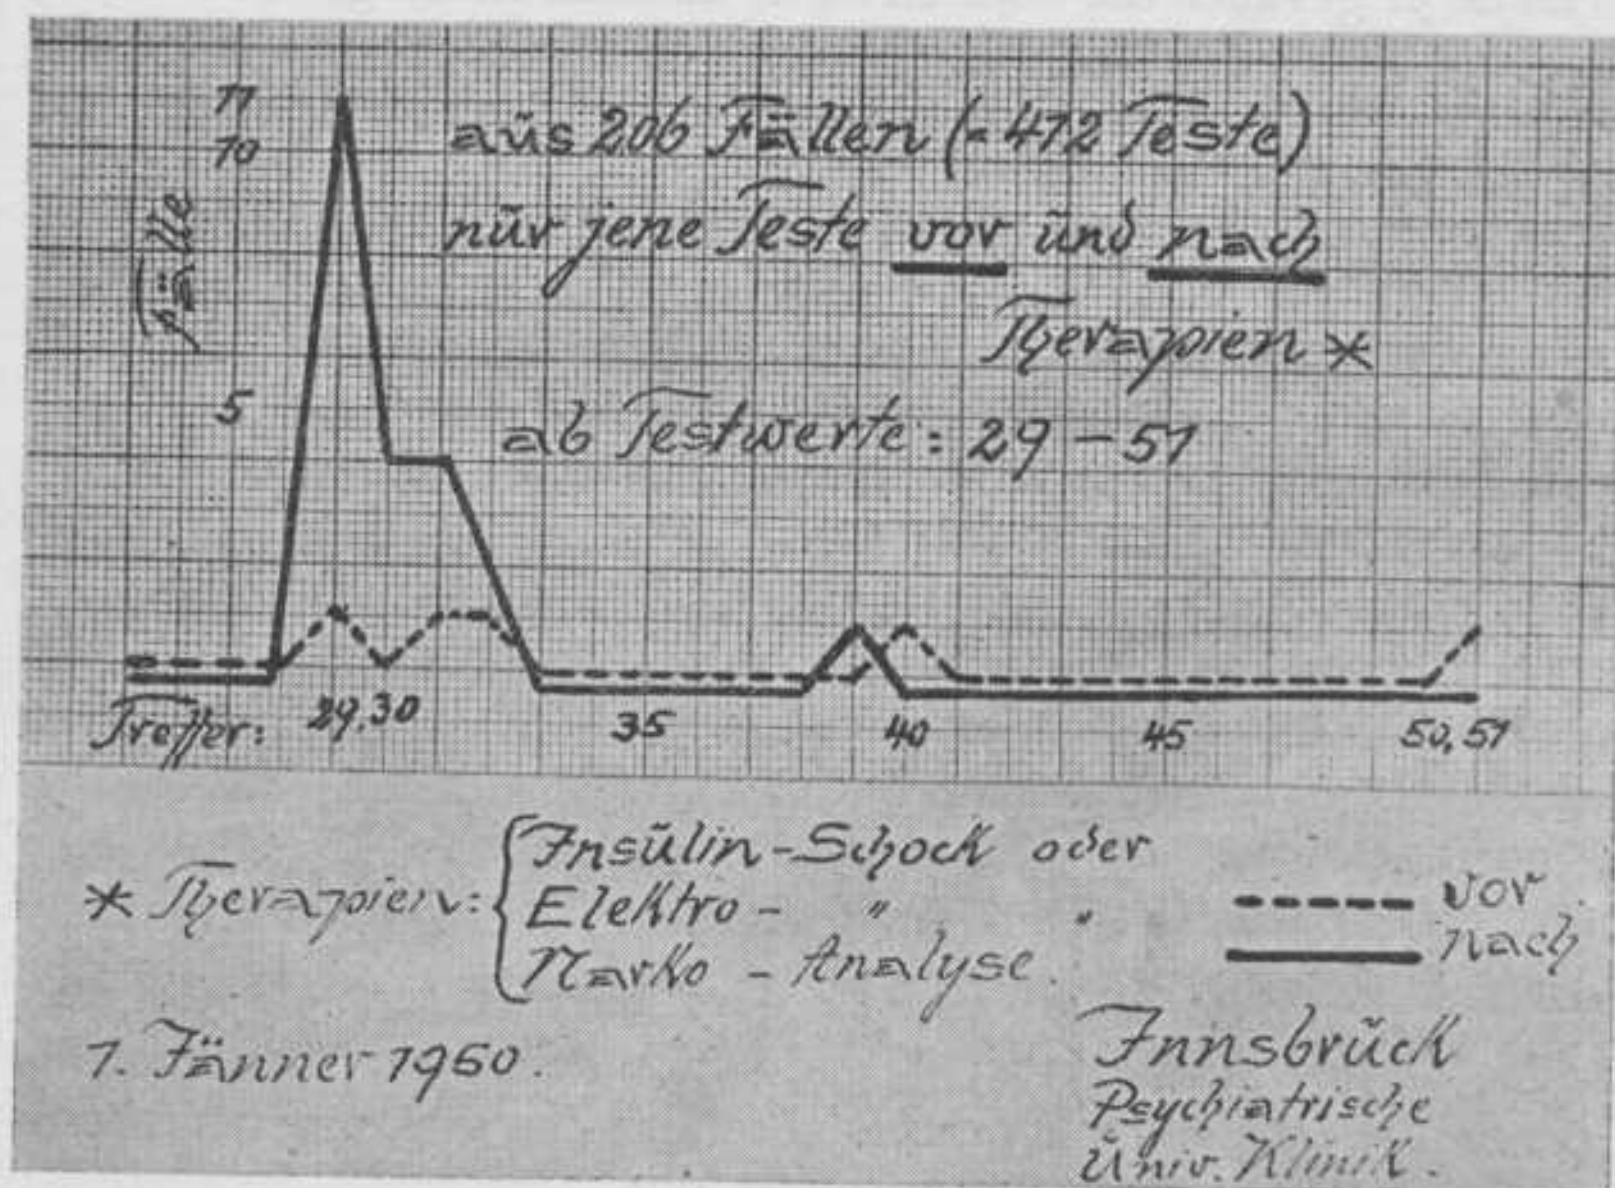 11
10
Fälle
5
aus 206 Fällen (= 412 Teste)
nur jene Teste vor und nach
Therapien *
ab Testwerte: 29 – 51
Treffer: 29,30 35 40 45 50,51
* Therapien: { Insulin-Schock oder
Elektro - " "
Narko - Analyse.
vor
nach
1. Jänner 1950.
Innsbruck
Psychiatrische
Univ. Klinik.